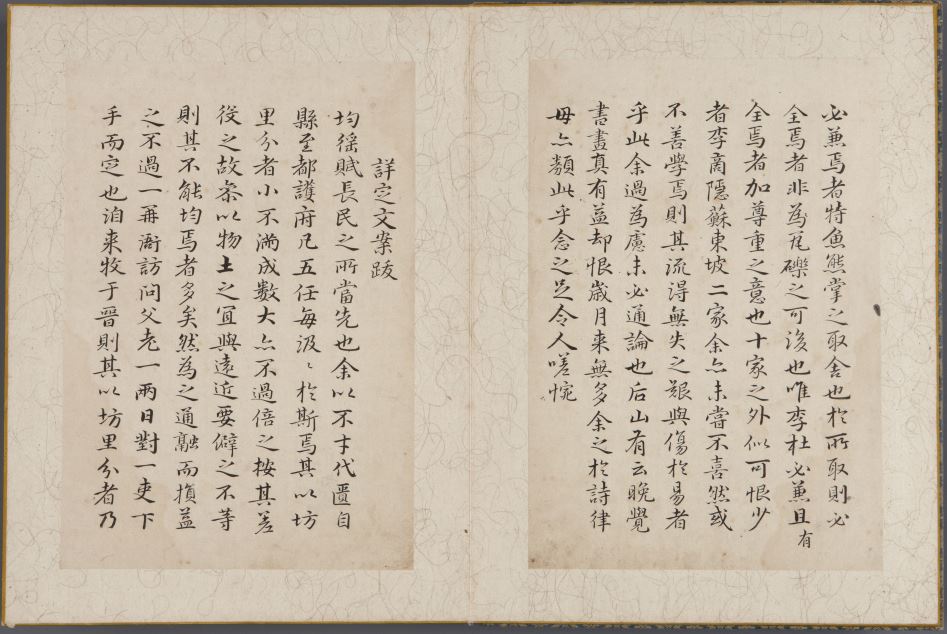 必兼焉者特魚熊掌之取舍也於所取則必
全焉者非為瓦礫之可後也唯李杜必兼且有
全焉者加尊重之意也十家之外似可恨少
者李商隱蘇東坡二家余亦未嘗不喜然或
不善學焉則其流得無失之艱與傷於易者
乎此余過為慮未必通論也后山有云晚覺
書畫真有益却恨歲月来無多余之於詩律
毋亦類此乎念之足令人嗟惋
詳定文案跋
均徭賦長民之所當先也余以不才代匱自
縣至都護府凡五任每汲〻於斯焉其以坊
里分者小不滿成數大亦不過倍之按其差
役之故亦以物土之宜與遠近要僻之不等
則其不能均焉者多矣然為之通融而損益
之不過一再衙訪問父老一兩日對一吏下
手而定也洎来牧于晉則其以坊里分者乃